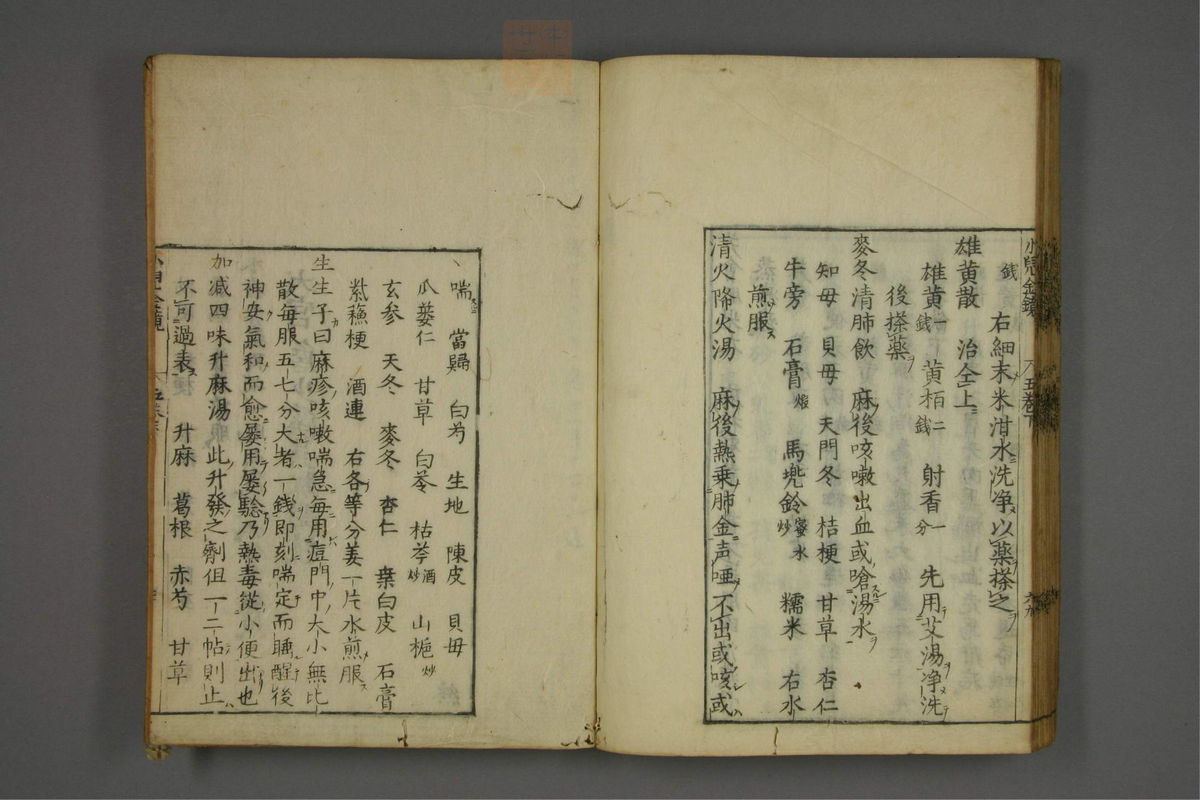 小兒金鏡 五卷下
錢 右細末米泔水洗净以薬搽之
雄黄散 治仝上
雄黄一錢 黄栢二錢 射香一分 先用艾湯净洗
後搽薬
麥冬清肺飲 麻後咳嗽出血或嗆湯水
知毋 貝毋 天門冬 桔梗 甘草 杏仁
牛旁 石膏煅 馬兠鈴蜜水炒 糯米 右水
煎服
清火降火湯 麻後熱乗肺金声唖不出或咳或
喘 當歸 白芍 生地 陳皮 貝毋
瓜蔞仁 甘草 白苓 枯芩酒炒 山梔炒
玄参 天冬 麥冬 杏仁 桒白皮 石膏
紫蘓梗 酒連 右各等分姜一片水煎服
生生子曰麻疹咳嗽喘急毎用痘門中大小無比
散毎服五七分大者一錢即刻喘定而睡醒後
神安氣和而愈屡用屡驗乃熱毒從小便出也
加减四味升麻湯 此升發之劑但一二帖則止
不可過表 升麻 葛根 赤芍 甘草